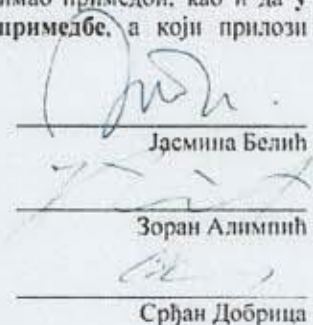 имао примедби, као и да у
примедбе, а који прилози
Јасмина Белић
Зоран Алимпић
Срђан Добрица